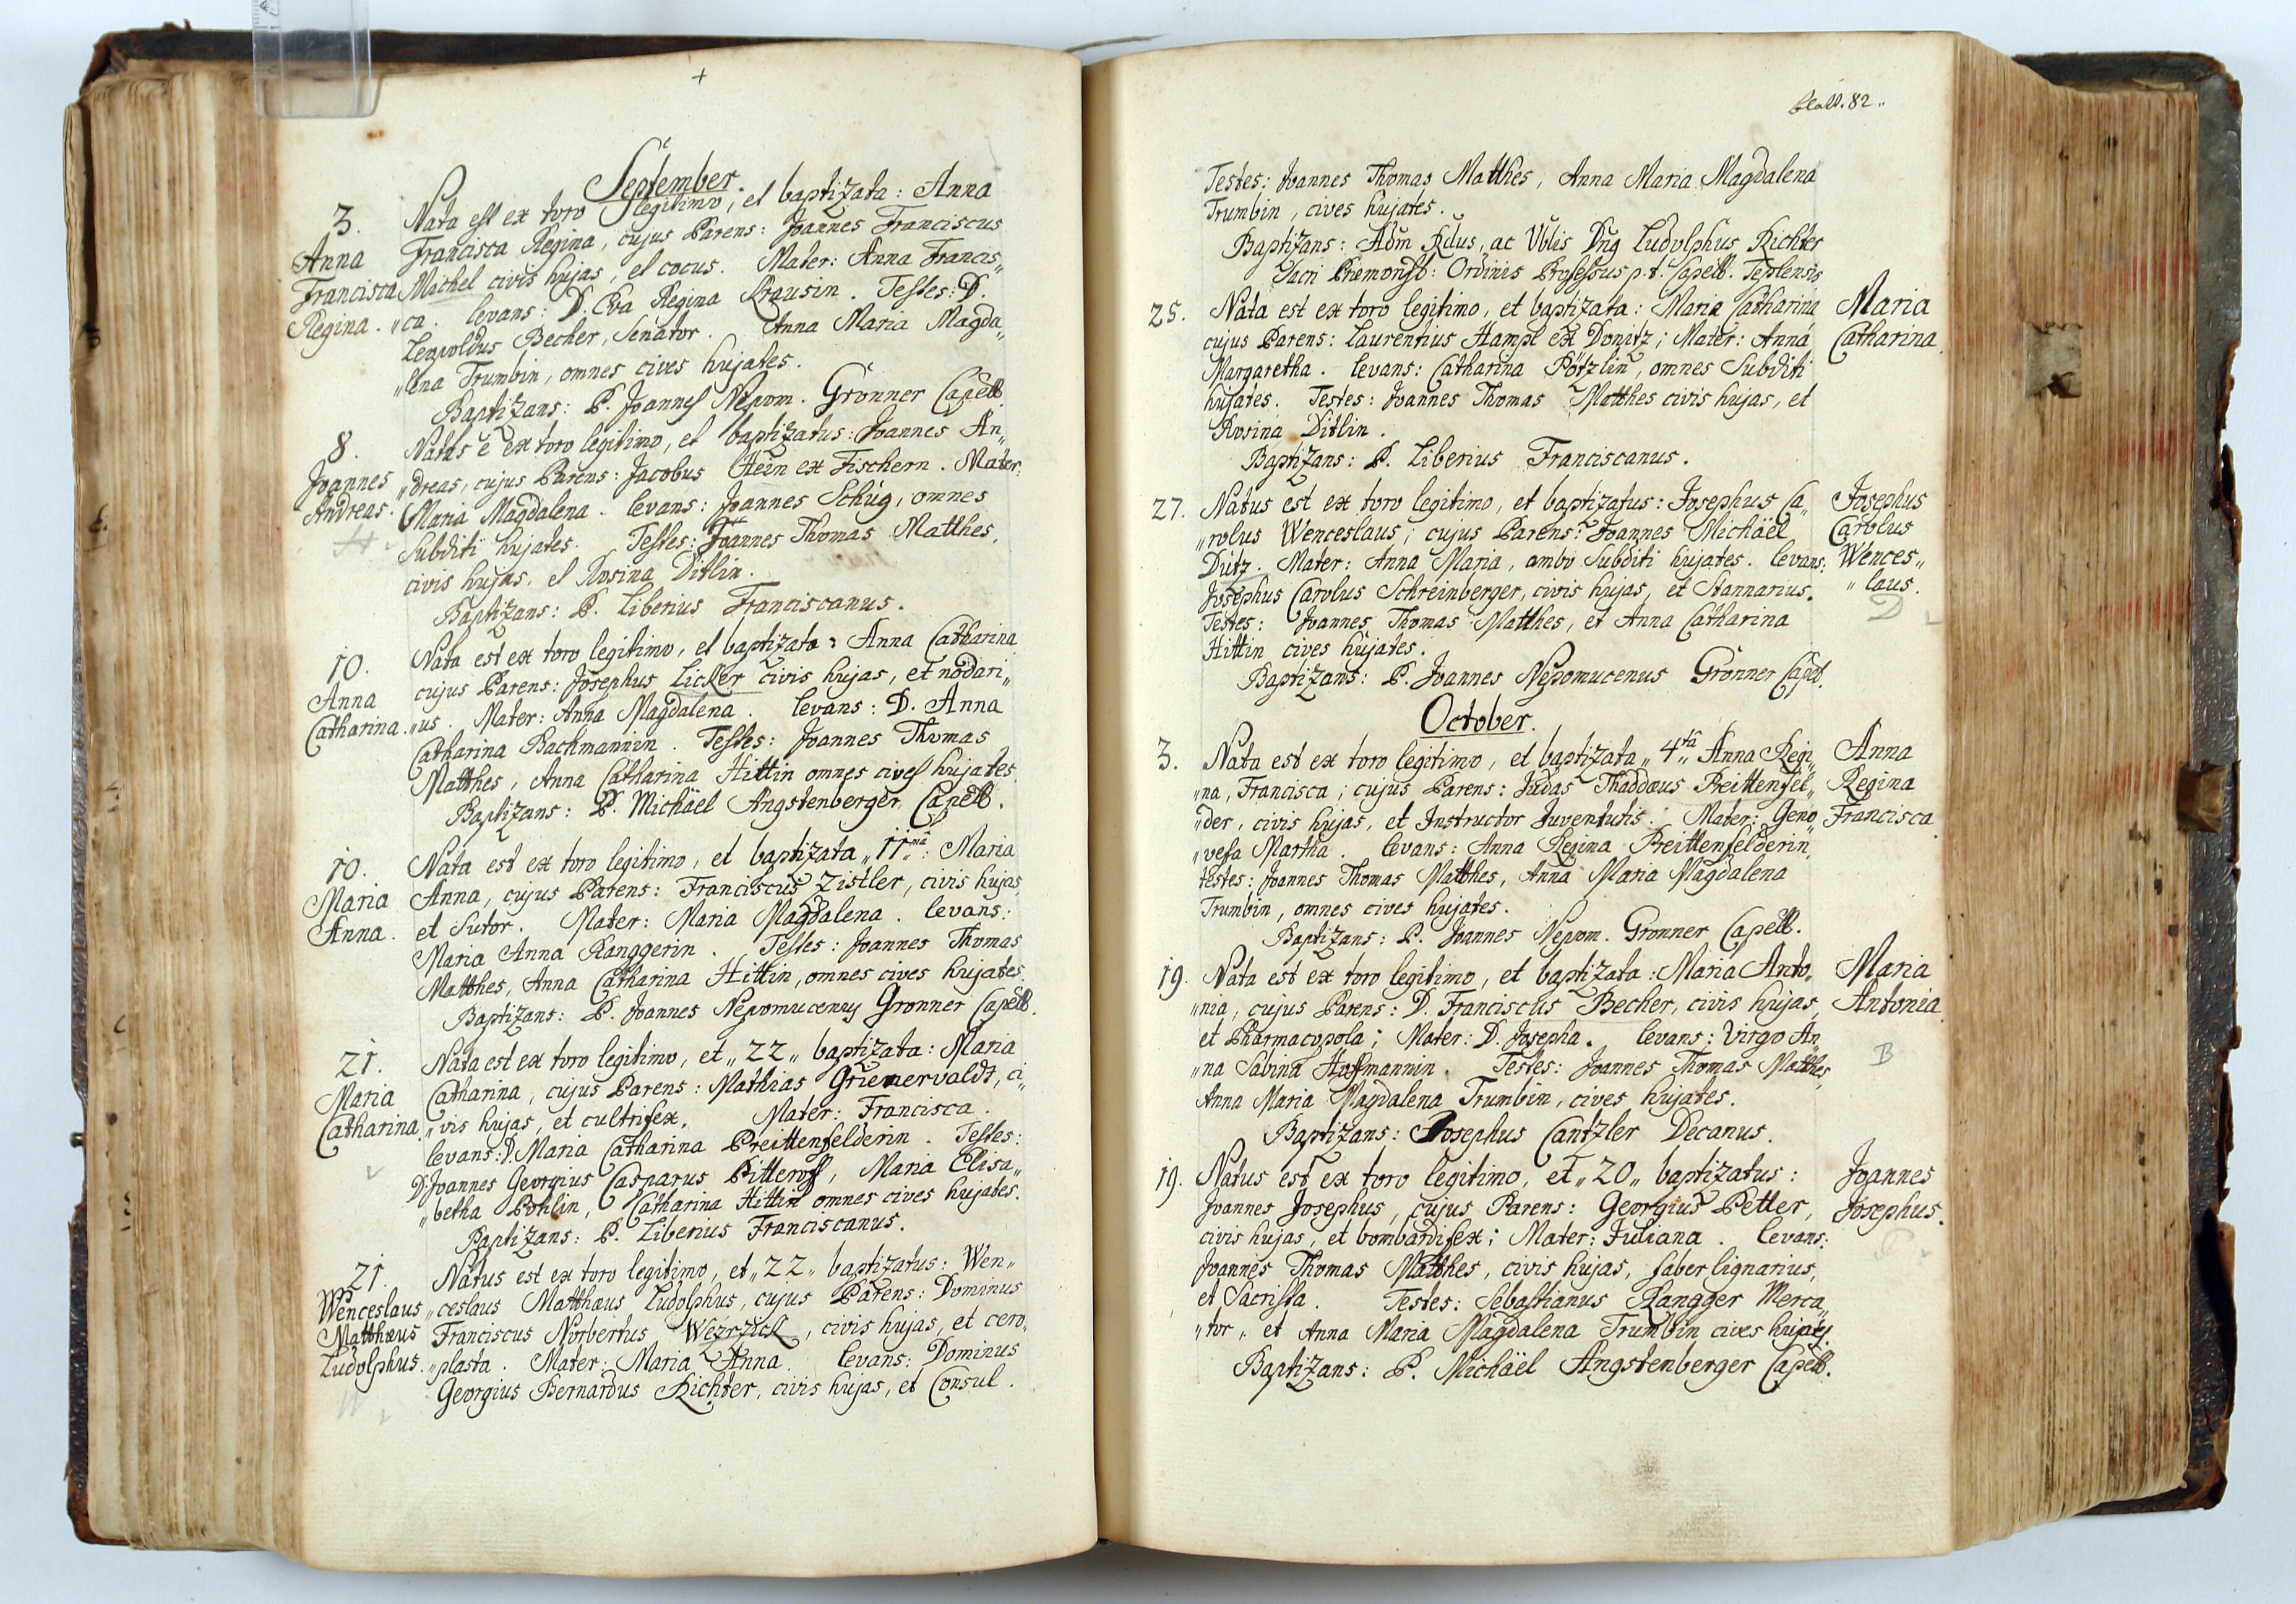 September.
3. Nata est ex toro legitimo, et baptizata: Anna
Anna Francisca Regina, cujus Parens: Joannes Franciscus
Francisca Michel civis hujas, et cocus. Mater: Anna Francis„
Regina. „ca. levans: D. Eva Regina Krausin. Testes: D.
Leopoldus Becher, Senator. Anna Maria Magda„
„lena Trumbin, omnes cives hujates.
Baptizans: P. Joannes Nepom. Gronner Capell.
8. Natus e ex toro legitimo, et baptizatus: Joannes An„
Joannes „dreas, cujus Parens: Jacobus Hein ex Fischern. Mater:
Andreas. Maria Magdalena. levans: Joannes Schüg, omnes
H Subditi hujates. Testes: Joannes Thomas Matthes,
civis hujas, et Rosina Ditlin.
Baptizans: P. Liberius Franciscanus.
10. Nata est ex toro legitimo, et baptizata: Anna Catharina
Anna cujus Parens: Josephus Licker civis hujas, et nodari„
Catharina. „us. Mater: Anna Magdalena. levans: D. Anna
Catharina Bachmannin. Testes: Joannes Thomas
Matthes, Anna Catharina Hittin omnes cives hujates.
Baptizans: P. Michäel Angstenberger Capell.
10. Nata est ex toro legitimo, et baptizata „11„ma: Maria
Maria Anna, cujus Parens: Franciscus Zistler, civis hujas,
Anna. et Sutor. Mater: Maria Magdalena. levans:
Maria Anna Ranggerin. Testes: Joannes Thomas
Matthes, Anna Catharina Hittin, omnes cives hujates.
Baptizans: P. Joannes Nepomucenus Gronner Capell.
21. Nata est ex toro legitimo, et „22„ baptizata: Maria
Maria Catharina, cujus Parens: Mathias Grienervaldt, ci„
Catharina. „vis hujas, et cultrifex. Mater: Francisca.
levans: D. Maria Catharina Preittenfelderin. Testes:
D. Joannes Georgius Casparus Pitteroff, Maria Elisa„
„betha Pohlin, Catharina Hittin omnes cives hujates.
Baptizans: P. Liberius Franciscanus.
21. Natus est ex toro legitimo, et „22„ baptizatus: Wen„
Wenceslaus „ceslaus Matthæus Ludolphus, cujus Parens: Dominus
Matthæus Franciscus Norbertus Wezrzick, civis hujas, et cero„
Ludolphus. „plasta. Mater: Maria Anna. levans: Dominus
W Georgius Bernardus Richter, civis hujas, et Consul.
Blatt. 82.
Testes: Joannes Thomas Matthes, Anna Maria Magdalena
Trumbin, cives hujates.
Baptizans: Adm Rdus, ac Vblis Dng Ludolphus Richter
Sacri Præmonst: Ordinis Professus p.t. Capell. Teplensis
25. Nata est ex toro legitimo, et baptizata: Maria Catharina Maria
cujus Parens: Laurentius Hampl ex Donitz; Mater: Anna Catharina
Margaretha. levans: Catharina Pötzlin, omnes Subditi
hujates. Testes: Joannes Thomas Matthes civis hujas, et
Rosina Ditlin.
Baptizans: P. Liberius Franciscanus.
27. Natus est ex toro legitimo, et baptizatus: Josephus Ca„ Josephus
„rolus Wenceslaus; cujus Parens: Joannes Michäel Carolus
Dutz. Mater: Anna Maria, ambo Subditi hujates. levans: Wences„
Josephus Carolus Schreinberger, civis hujas, et Stannarius. „laus.
Testes: Joannes Thomas Matthes, et Anna Catharina D
Hittin cives hujates.
Baptizans: P. Joannes Nepomucenus Gronner Capel.
October.
3. Nata est ex toro legitimo, et baptizata „4„ta Anna Regi„ Anna
„na, Francisca; cujus Parens: Judas Thaddæus Preittenfel„ Regina
„der, civis hujas, et Instructor Juventutis. Mater: Geno„ Francisca
„vefa Martha. levans: Anna Regina Preittenfelderin,
testes: Joannes Thomas Matthes, Anna Maria Magdalena
Trumbin, omnes cives hujates.
Baptizans: P. Joannes Nepom. Gronner Capell.
19. Nata est ex toro legitimo, et baptizata: Maria Anto„ Maria
„nia, cujus Parens: D. Franciscus Becher, civis hujas, Antonia
et Pharmacopola; Mater: D. Josepha. levans: Virgo An„
„na Sabina Hoffmannin. Testes: Joannes Thomas Matthes, B
Anna Maria Magdalena Trumbin, cives hujates.
Baptizans: Josephus Cantzler Decanus.
19. Natus est ex toro legitimo, et „20„ baptizatus: Joannes
Joannes Josephus, cujus Parens: Georgius Petter, Josephus.
civis hujas, et bombardifex; Mater: Juliana. levans:
Joannes Thomas Matthes, civis hujas, faber lignarius,
et Sacrista. Testes: Sebastianus Rangger Merca„
„tor„ et Anna Maria Magdalena Trumbin cives hujates.
Baptizans: P. Michäel Angstenberger Capell.